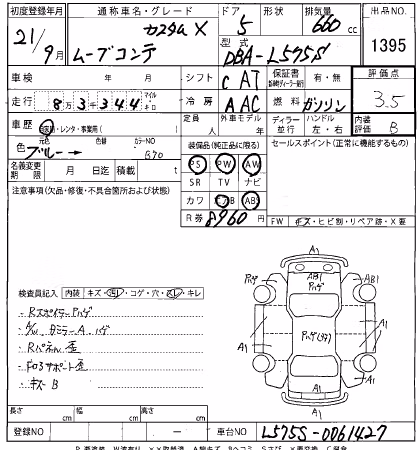 初度登録年月 通称車名・グレード ドア 形状 排気量 出品NO.
21/9月 ムーブコンテ カスタム X 5 660 cc 1395
型式 DBA-L575S
車検 年 月 シフト C AT 保証書 有・無 評価点
走行 8万3千344 マイル キロ 冷房 AAC 燃料 ガソリン 3.5
車歴 自家用・レンタ・事業用( ) 定員 人 外車モデル 年 ディーラー 並行 ハンドル 左・右 内装評価 B
色 元色 ブルー → 色替 カラーNO B70
装備品(純正品に限る) セールスポイント(正常に機能するもの)
PS PW AW
名義変更期限 月 日 積載 t
SR TV ナビ
注意事項(欠品・修復・不具合箇所および状態)
カワ エアB ABS
R券 8960 円
FW キズ・ヒビ割・リペア跡・X要
検査員記入 内装 キズ・汚・コゲ・穴・スレ・キレ
・Rスポイラーハゲ
・A/W
・Rパネル歪
・キズB
A1
ハゲ AB1 ハゲ AB1
A1 ハゲ A1
A1
A1
長さ cm 幅 cm 高さ cm
登録NO ー 車台NO L575S-0061427